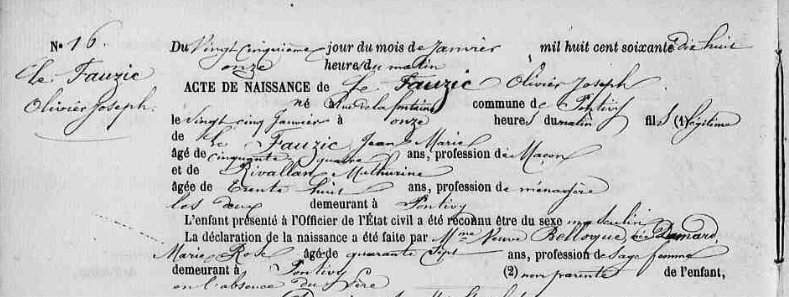 N° 16.
Le Fauzic
Olivier Joseph.
Du Vingt cinquième jour du mois de Janvier mil huit cent soixante dix huit
onze heures du matin
ACTE DE NAISSANCE de Le Fauzic Olivier Joseph
né Rue de la fontaine commune de Pontivy
le vingt cinq Janvier à onze heures du matin fils (1) légitime
de Le Fauzic Jean Marie
âgé de cinquante quatre ans, profession de Maçon
et de Rivallan Mathurine
âgée de trente huit ans, profession de ménagère
les deux demeurant à Pontivy
L'enfant présenté à l'Officier de l'État civil a été reconnu être du sexe masculin
La déclaration de la naissance a été faite par Mme Veuve Bellouque, née Damard,
Marie Rose âgée de quarante sept ans, profession de Sage femme
demeurant à Pontivy (2) non parente de l'enfant,
en l'absence du Père